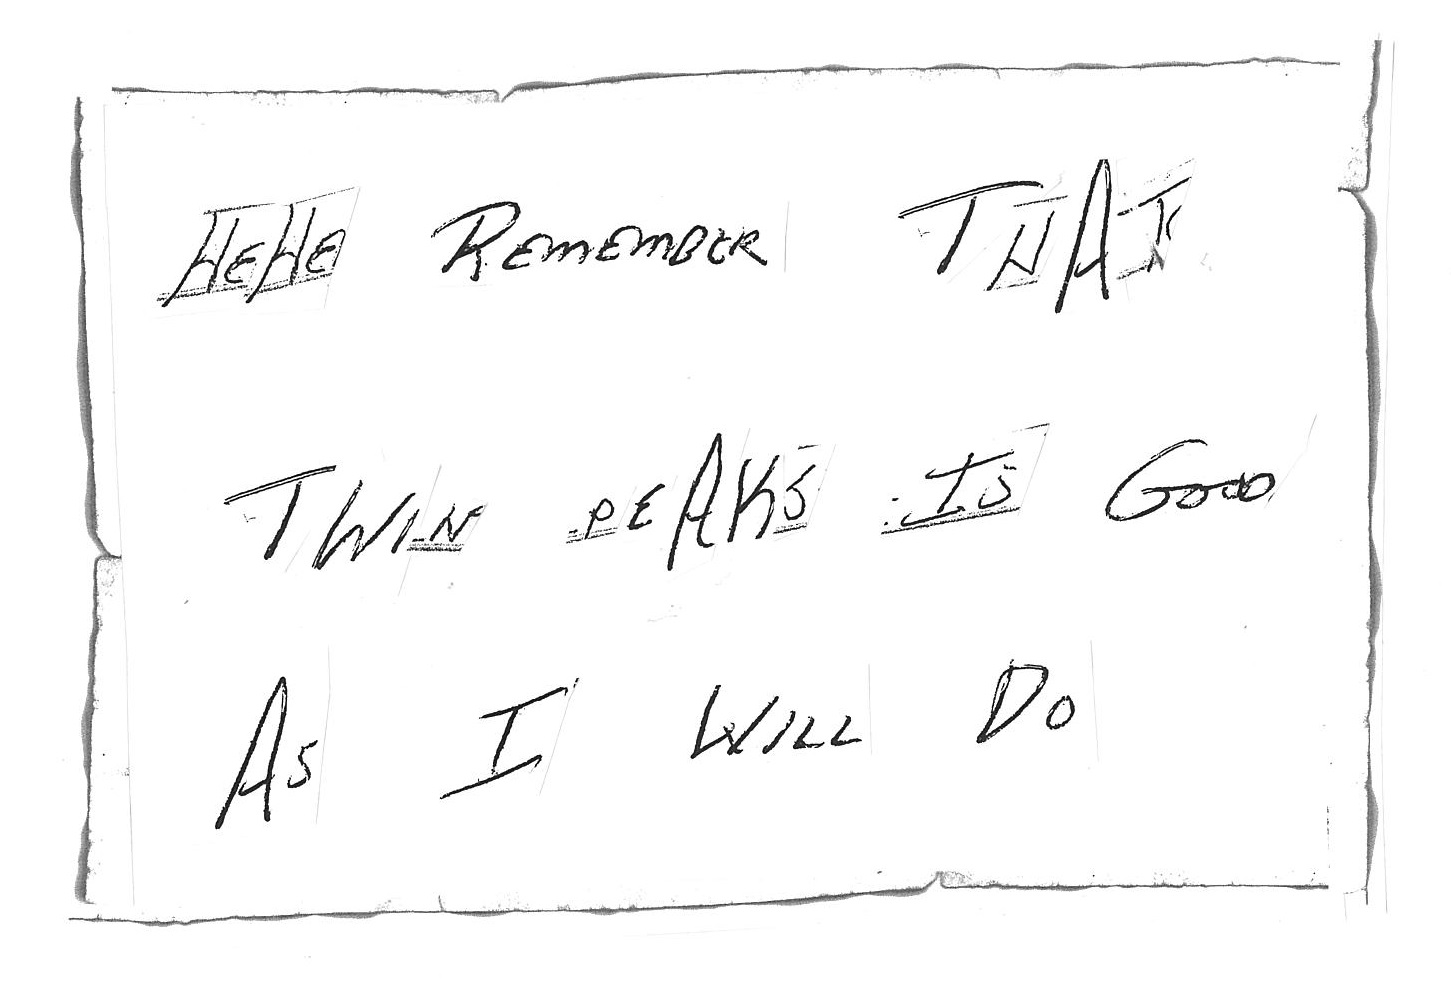 HeHe Remember THAT
Twin peAKs Is Good
As I Will Do